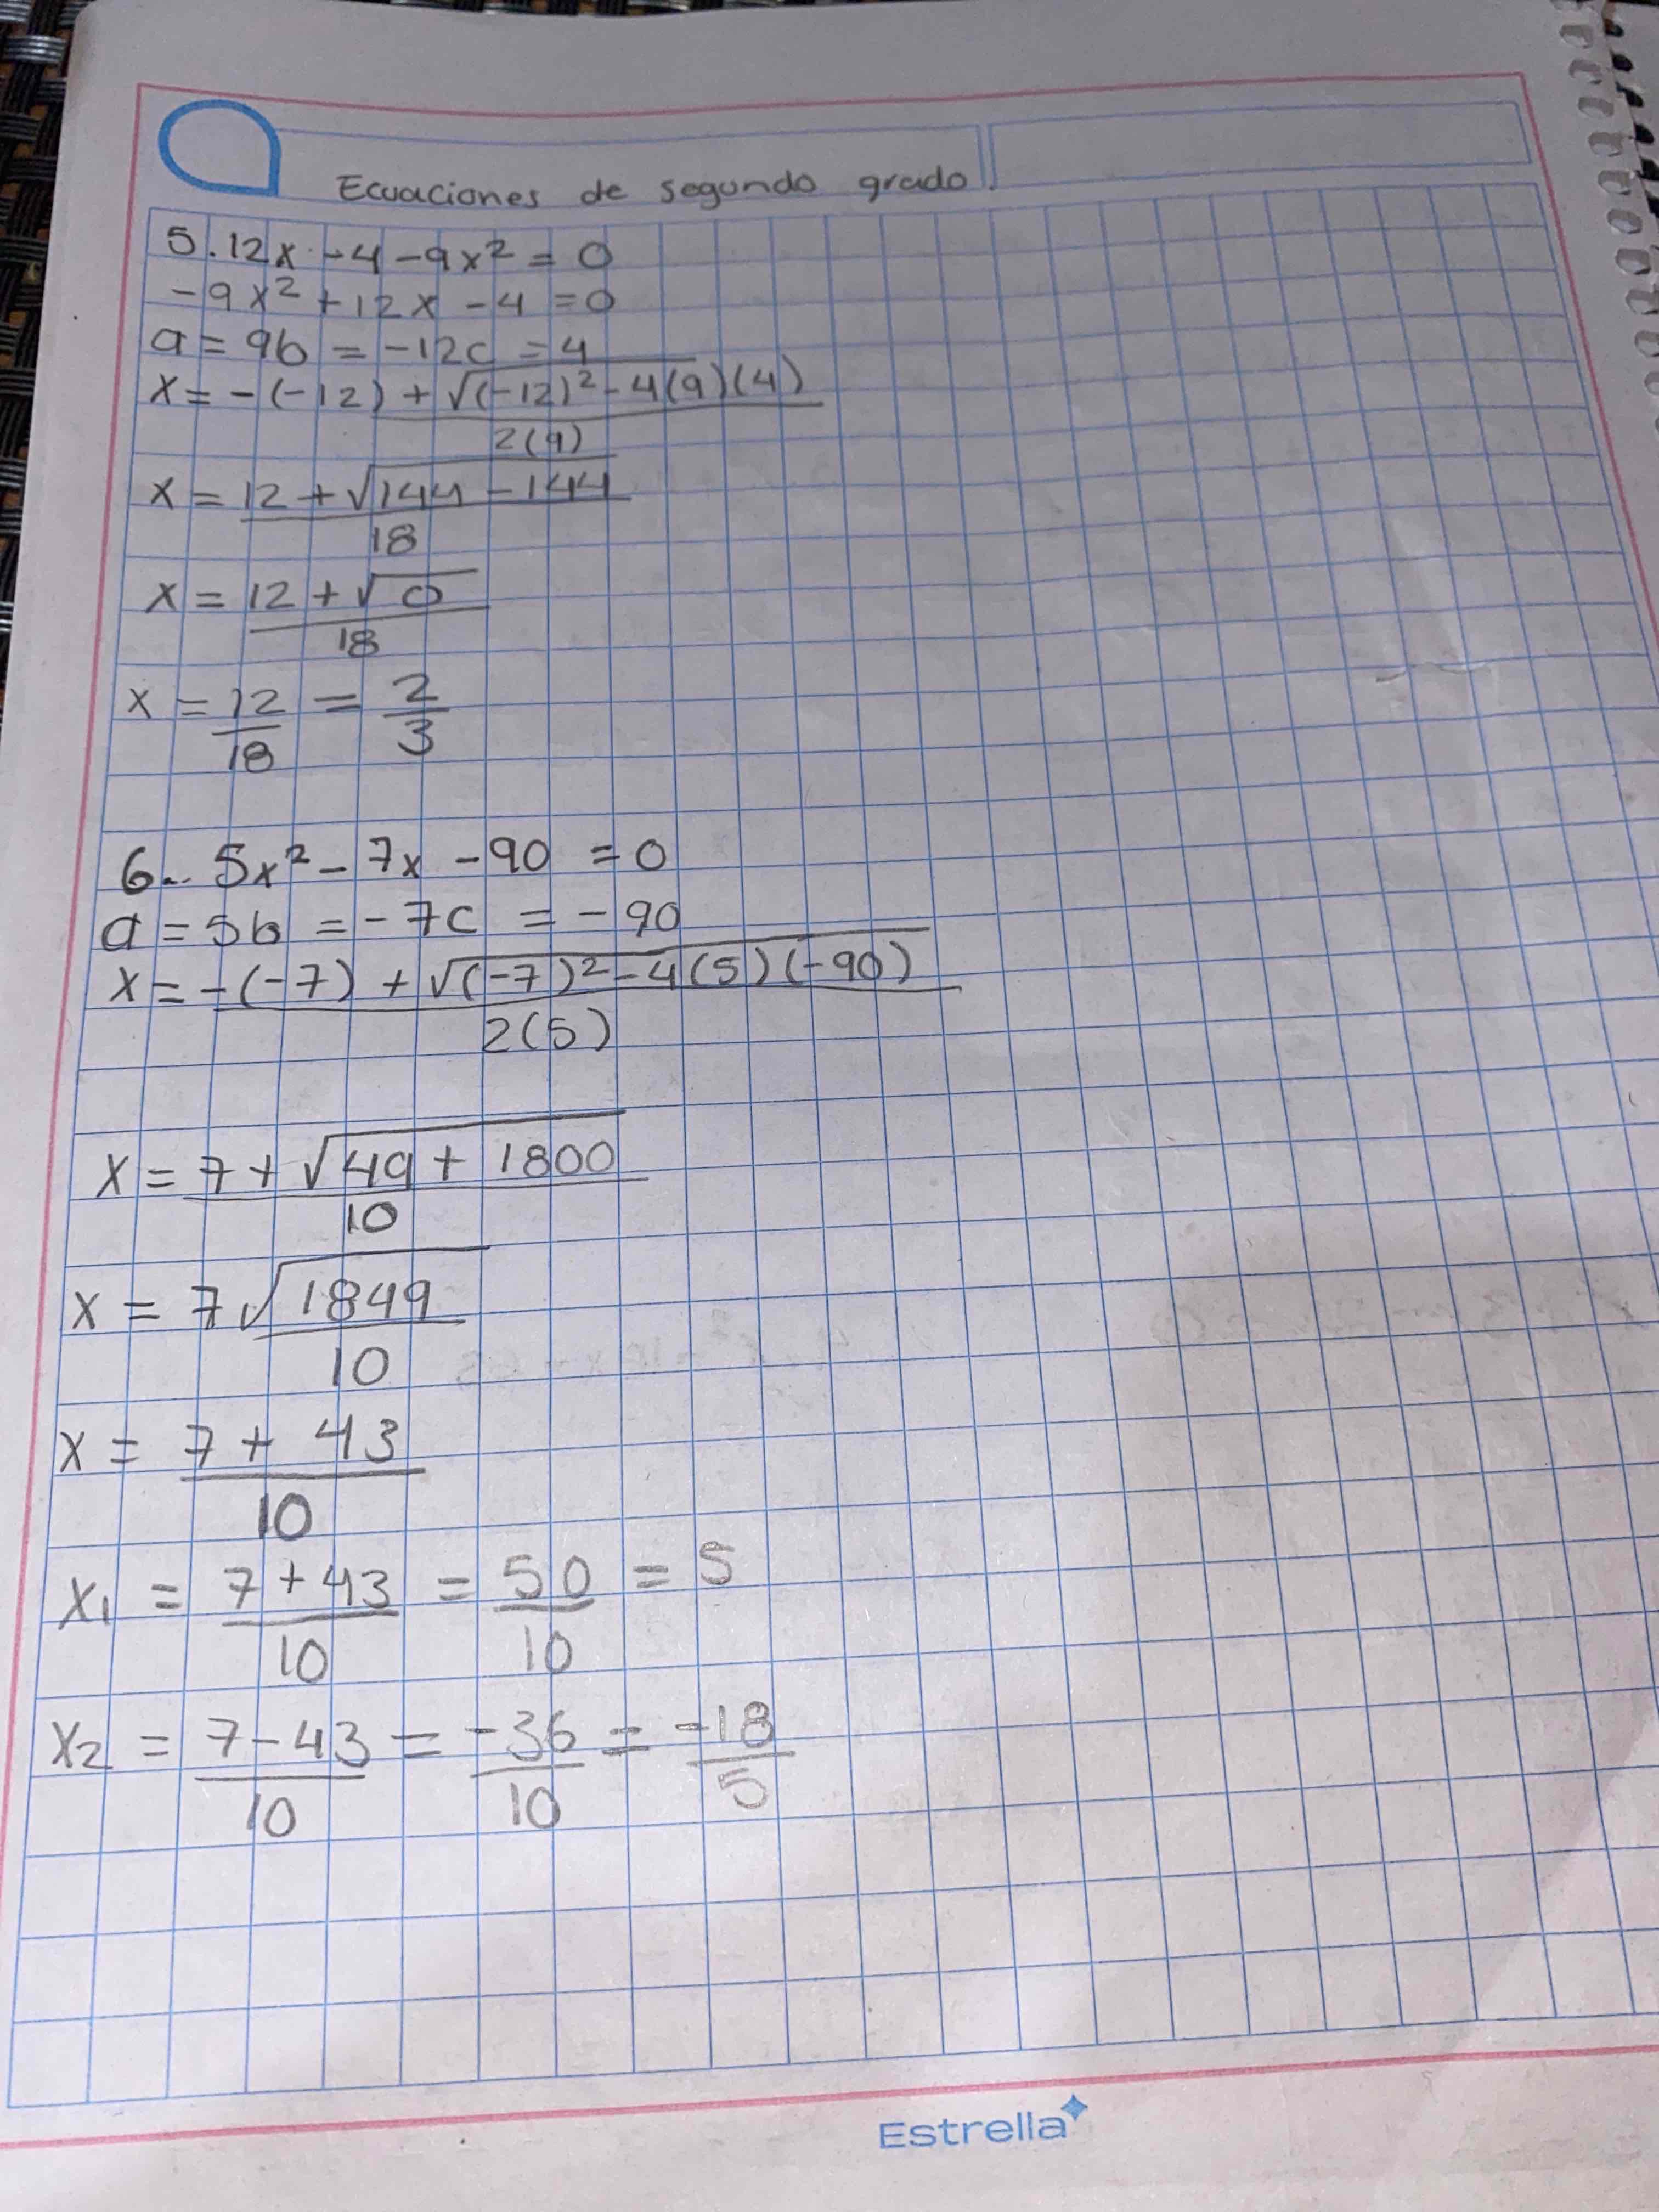 Ecuaciones de segundo grado.
5. 12x - 4 - 9x² = 0
-9x² + 12x - 4 = 0
a = 9b = -12c = 4
x = -(-12) + √(-12)² - 4(9)(4)
2(9)
x = 12 + √144 - 144
18
x = 12 + √0
18
x = 12/18 = 2/3
6.. 5x² - 7x - 90 = 0
a = 5b = -7c = -90
x = -(-7) + √(-7)² - 4(5)(-90)
2(5)
x = 7 + √49 + 1800
10
x = 7√1849
10
x = 7 + 43
10
x₁ = 7 + 43/10 = 50/10 = 5
x₂ = 7 - 43/10 = -36/10 = -18/5
Estrella